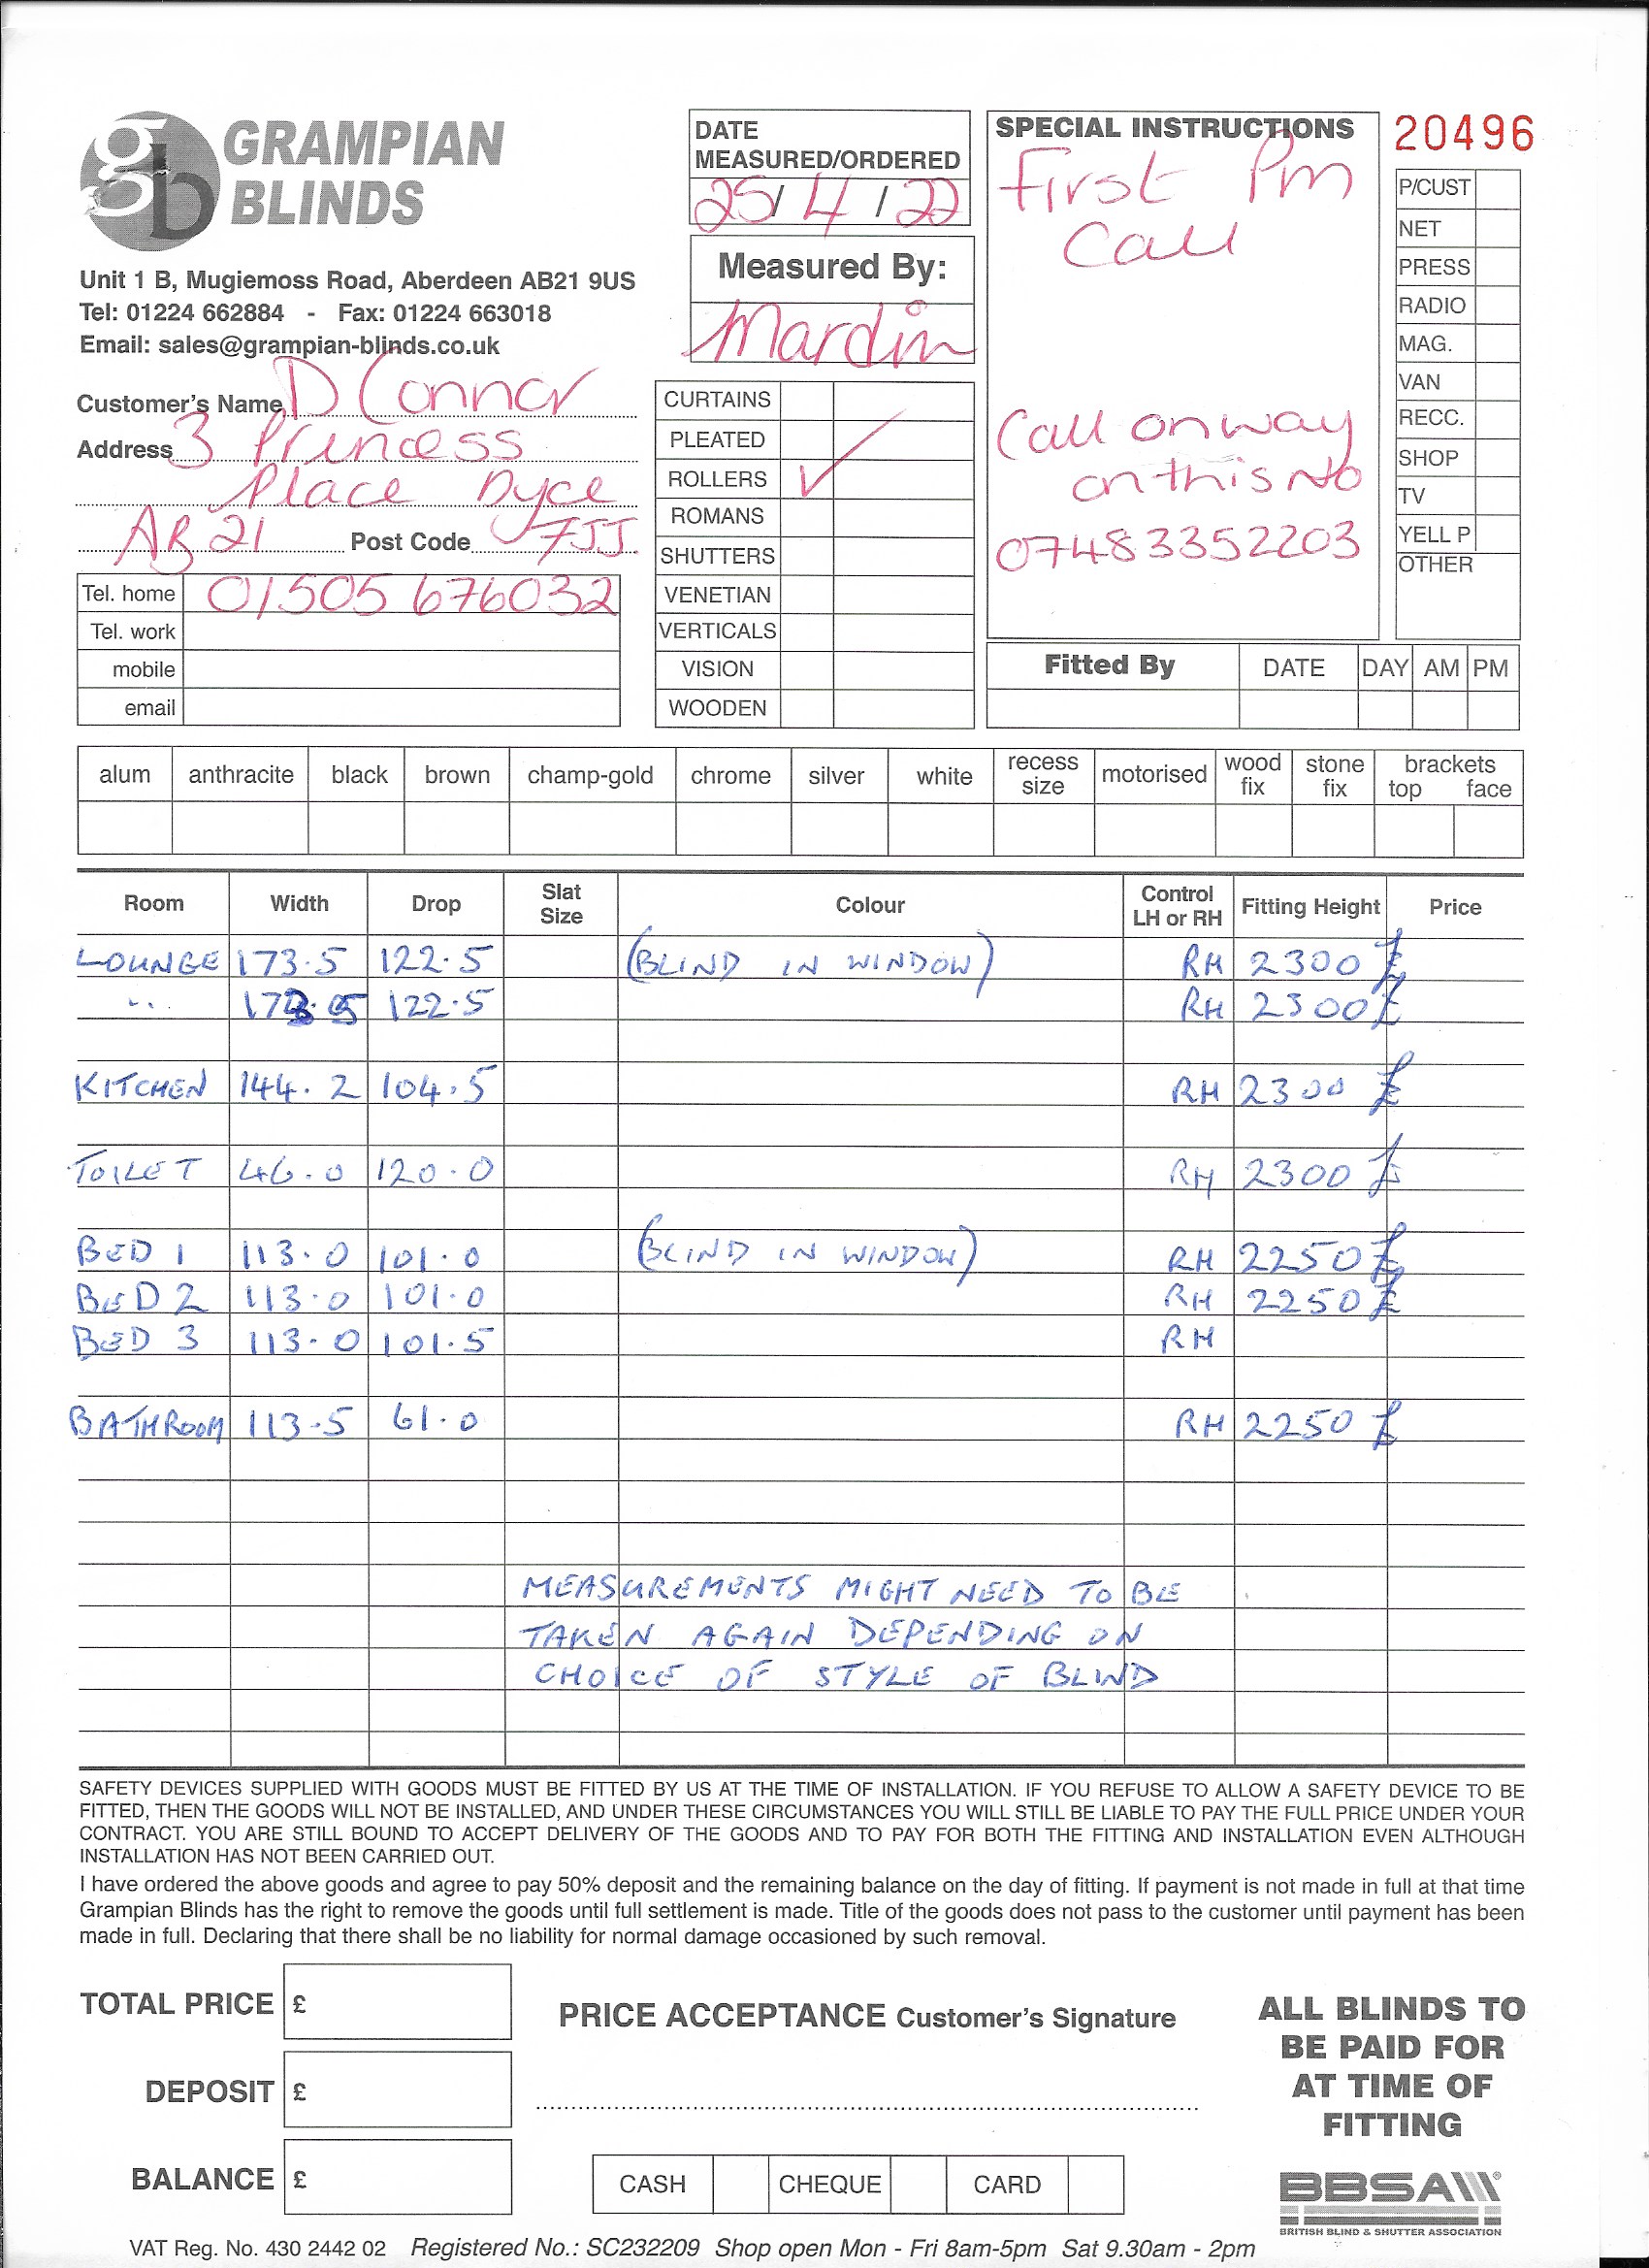 gb GRAMPIAN
BLINDS
Unit 1 B, Mugiemoss Road, Aberdeen AB21 9US
Tel: 01224 662884 - Fax: 01224 663018
Email: sales@grampian-blinds.co.uk
Customer's Name D Connor
Address 3 Princess
Place Dyce
AB21 Post Code 7JJ
Tel. home 01505 676032
Tel. work
mobile
email
DATE
MEASURED/ORDERED
25/4/22
Measured By:
Mardin
CURTAINS
PLEATED
ROLLERS ✓
ROMANS
SHUTTERS
VENETIAN
VERTICALS
VISION
WOODEN
SPECIAL INSTRUCTIONS
First Pm
Call
Call on way
on this No
07483352203
20496
P/CUST
NET
PRESS
RADIO
MAG.
VAN
RECC.
SHOP
TV
YELL P
OTHER
Fitted By DATE DAY AM PM
alum anthracite black brown champ-gold chrome silver white recess size motorised wood fix stone fix brackets top face
Room Width Drop Slat Size Colour Control LH or RH Fitting Height Price
LOUNGE 173.5 122.5 (BLIND IN WINDOW) RH 2300
" 122.5 RH 2300
KITCHEN 144.2 104.5 RH 2300
TOILET 46.0 120.0 RH 2300
BED 1 113.0 101.0 (BLIND IN WINDOW) RH 2250
BED 2 113.0 101.0 RH 2250
BED 3 113.0 101.5 RH
BATHROOM 113.5 61.0 RH 2250
MEASUREMENTS MIGHT NEED TO BE
TAKEN AGAIN DEPENDING ON
CHOICE OF STYLE OF BLIND
SAFETY DEVICES SUPPLIED WITH GOODS MUST BE FITTED BY US AT THE TIME OF INSTALLATION. IF YOU REFUSE TO ALLOW A SAFETY DEVICE TO BE
FITTED, THEN THE GOODS WILL NOT BE INSTALLED, AND UNDER THESE CIRCUMSTANCES YOU WILL STILL BE LIABLE TO PAY THE FULL PRICE UNDER YOUR
CONTRACT. YOU ARE STILL BOUND TO ACCEPT DELIVERY OF THE GOODS AND TO PAY FOR BOTH THE FITTING AND INSTALLATION EVEN ALTHOUGH
INSTALLATION HAS NOT BEEN CARRIED OUT.
I have ordered the above goods and agree to pay 50% deposit and the remaining balance on the day of fitting. If payment is not made in full at that time
Grampian Blinds has the right to remove the goods until full settlement is made. Title of the goods does not pass to the customer until payment has been
made in full. Declaring that there shall be no liability for normal damage occasioned by such removal.
TOTAL PRICE £
DEPOSIT £
BALANCE £
PRICE ACCEPTANCE Customer's Signature
CASH CHEQUE CARD
ALL BLINDS TO
BE PAID FOR
AT TIME OF
FITTING
BBSA
BRITISH BLIND & SHUTTER ASSOCIATION
VAT Reg. No. 430 2442 02 Registered No.: SC232209 Shop open Mon - Fri 8am-5pm Sat 9.30am - 2pm